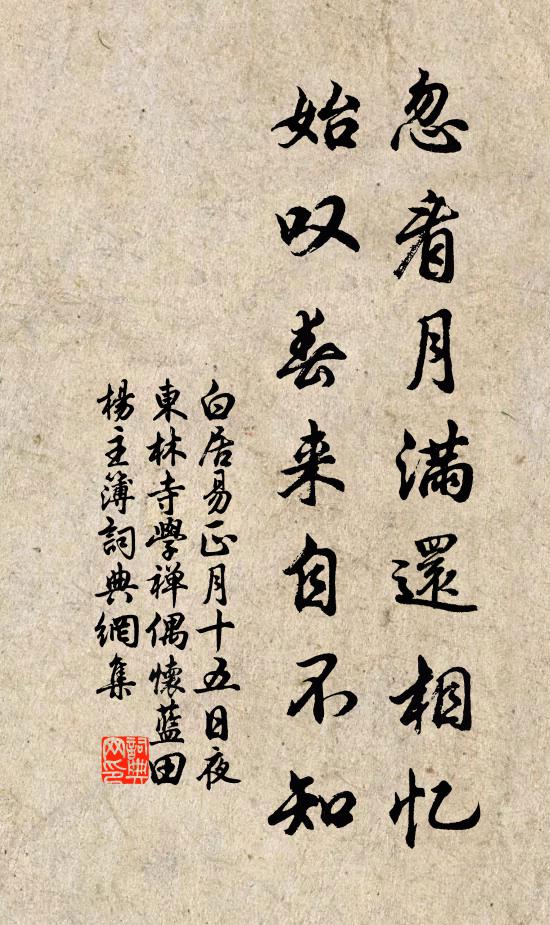 忽看月满還相忆
始叹春来自不知
白居易正月十五日夜
東林寺學禅偶懷藍田
楊主簿詞典網集
詞典网印